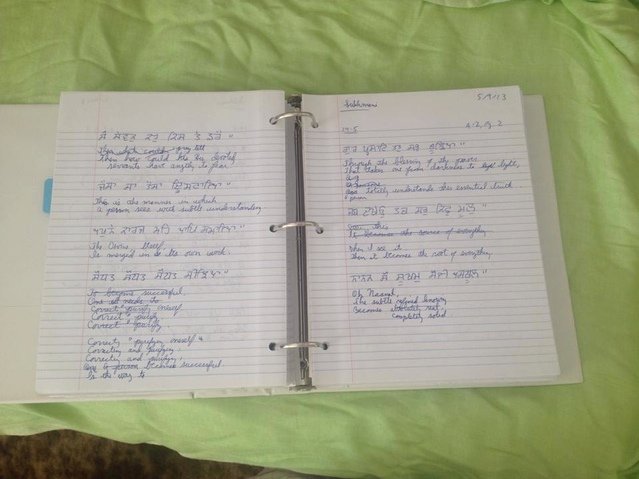 ਸੋ ਸੇਵਕ ਕਹੁ ਕਿਸ ਤੇ ਡਰੈ "
This
then how could the thy devoted
servants have anything to fear.
ਜੈਸਾ ਸਾ ਤੈਸਾ ਦ੍ਰਿਸਟਾਇਆ "
This is the manner in which
a person sees with subtle understanding
ਅਪੁਨੇ ਕਾਰਜ ਮਹਿ ਆਪਿ ਸਮਾਇਆ "
The Divine Itself
Is merged in to its own work.
ਸੋਧਤ ਸੋਧਤ ਸੋਧਤ ਸੀਝਿਆ "
To become successful.
One needs to
Correct purify oneself
Correct purify
Correct purify.
Correcting purifying oneself
Correcting and purifying
Correcting and purifying,
a person becomes successful
Is the way to
Sukhmani
5/9/13
19.5
ਗੁਰ ਪ੍ਰਸਾਦਿ ਤਤੁ ਸਭੁ ਬੂਝਿਆ "
Through the blessing of the power
That takes one from darkness to light,
totally understands the essential truth
ਜਬ ਦੇਖਉ ਤਬ ਸਭੁ ਕਿਛੁ ਮੂਲੁ "
this
Is because the source of everything
When I see it
Then it becomes the root of everything.
ਨਾਨਕ ਸੋ ਸੂਖਮੁ ਸੋਈ ਅਸਥੂਲੁ "
Oh Nanak,
The subtle refined knowing
Becomes absolutely real
completely solid